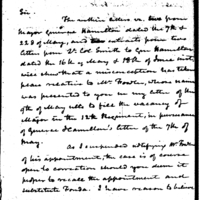 Sir.
The within letters viz. two from
Major General Hamilton dated the 7th &
22d of May, and extracts from two
letters from Lt. Col Smith to Gen Hamilton
dated the 16th of May & 18th of June inst
will shew that a misconception has taken
place relative to Mr Fowler, whose name
was presented to you in my letter of the
9th of May ulto to fill the vacancy of
Major in the 12th Regiment, in pursuance
of General Hamilton's letter of the 7th of
May.
As I suspended notifying Mr
of his appointment, the case is of course
open to correction should you deem it
proper to recall the appointment and
substitute . I have reason to believe